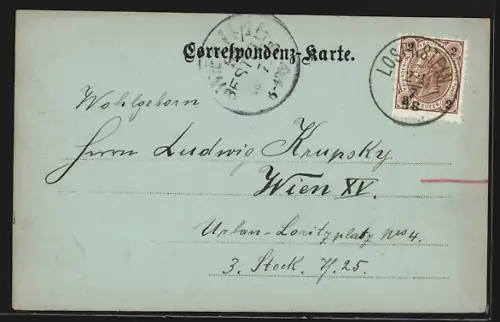 Correspondenz-Karte.
BEST
Wohlgeborn
Herrn Ludwig Krupsky
Wien XV.
Urban-Loritzplatz No 4.
3. Stock. Th. 25.
2 2
98